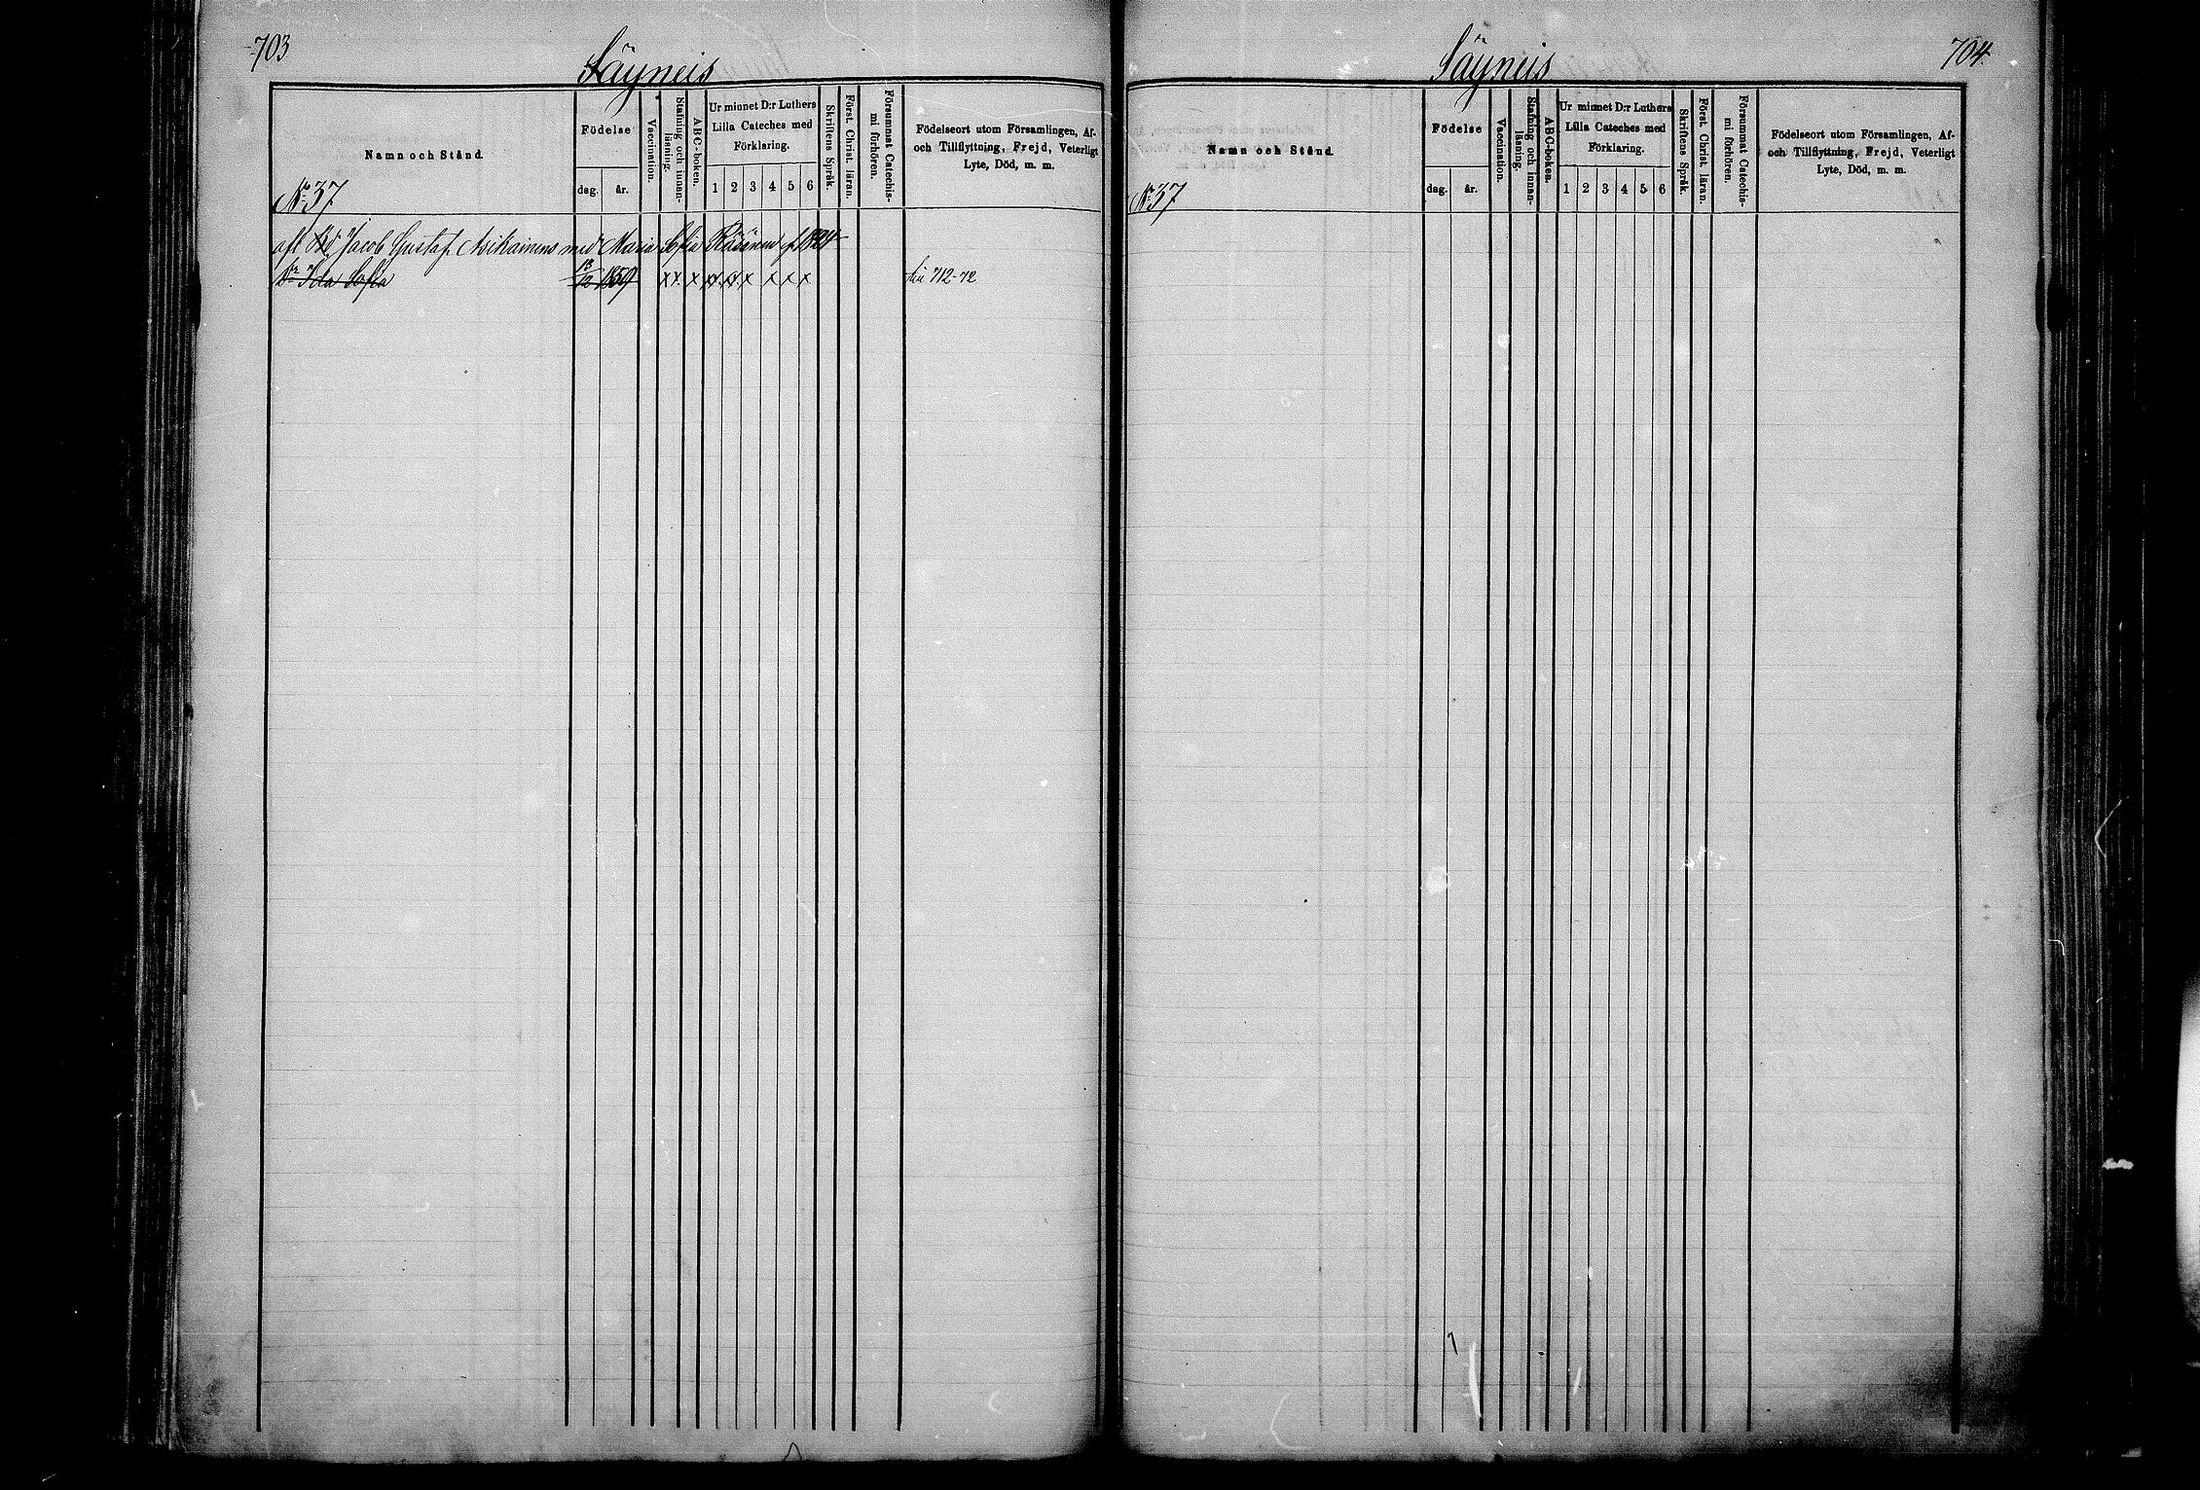 703
Säyneis
Namn och Stånd.
Födelse
dag. år.
Vaccination.
Stafning och innan-
läsning.
ABC-boken.
Ur minnet D:r Luthers
Lilla Cateches med
Förklaring.
1 2 3 4 5 6
Skriftens Språk.
Först. Christ. läran.
Försummat Catechis-
mi förhören.
Födelseort utom Församlingen, Af-
och Tillflyttning, Frejd, Veterligt
Lyte, Död, m. m.
No 37
afl. Jacob Gustaf Asikainens med Maria Sofia Räsänen f. 1824
Dr Ida Sofia 13/10 1859 x x x x x x x x x 712-72
704
Säyneis
Namn och Stånd.
Födelse
dag. år.
Vaccination.
Stafning och innan-
läsning.
ABC-boken.
Ur minnet D:r Luthers
Lilla Cateches med
Förklaring.
1 2 3 4 5 6
Skriftens Språk.
Först. Christ. läran.
Försummat Catechis-
mi förhören.
Födelseort utom Församlingen, Af-
och Tillflyttning, Frejd, Veterligt
Lyte, Död, m. m.
No 37